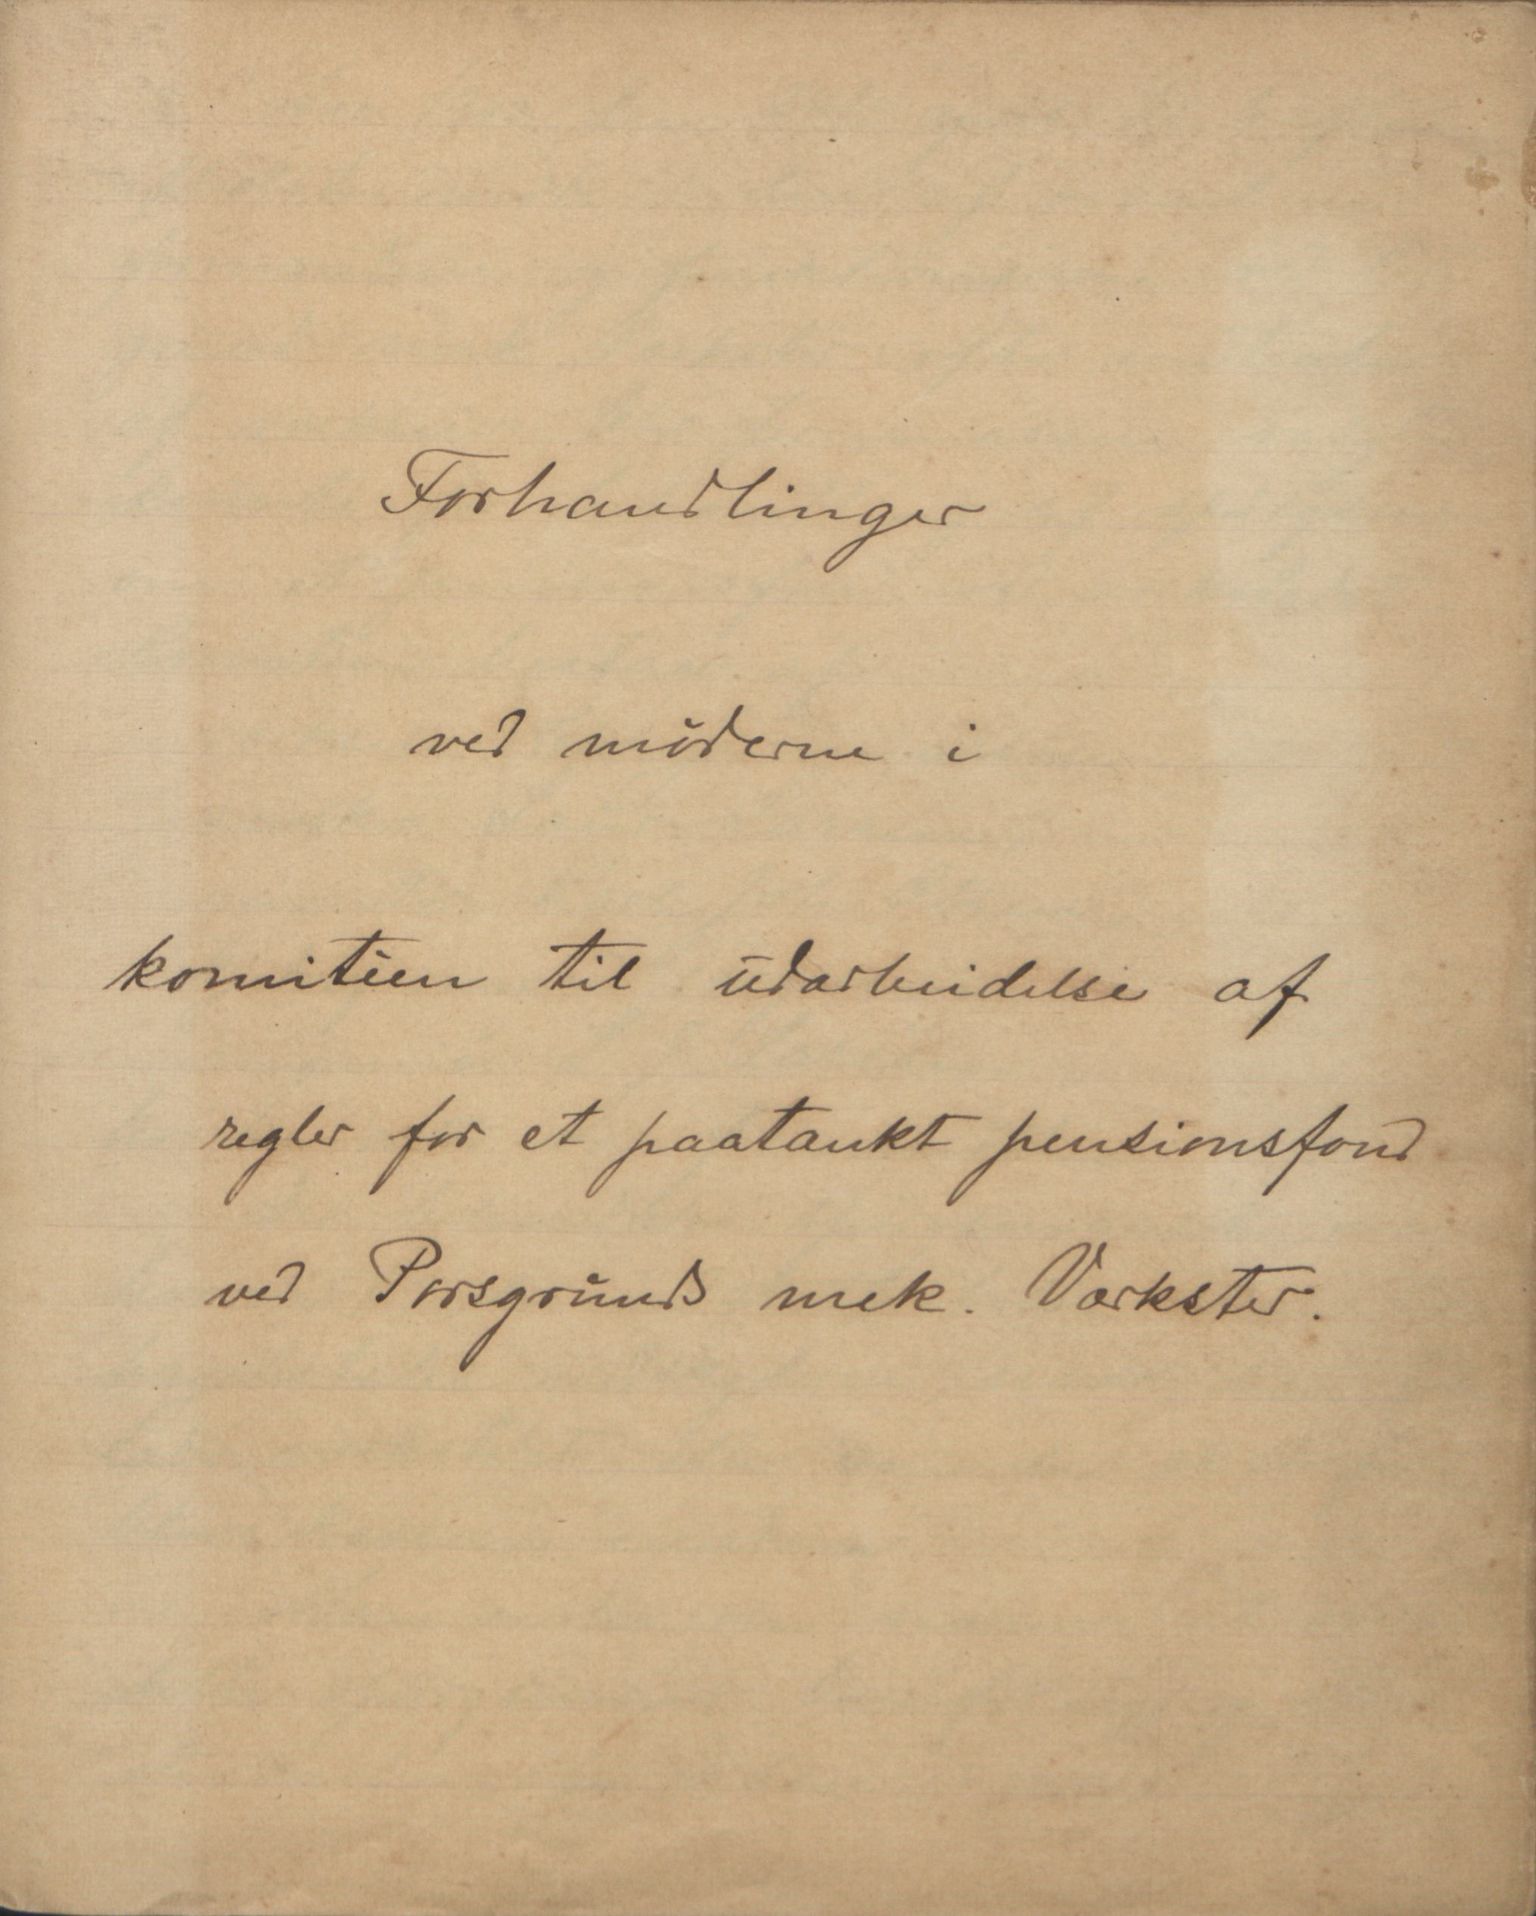 Forhandlinger
ved möderne i
komitéen til udarbeidelse af
regler for et paatænkt pensionsfond
ved Porsgrunds mek. Værksted.